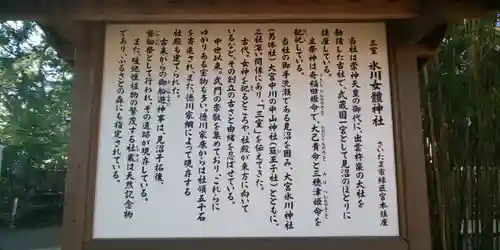 三室 氷川女體神社
さいたま市緑区宮本鎮座
当社は崇神天皇の御代に、出雲杵築の大社を
勧請した古社で、武蔵国一宮として見沼のほとりに
鎮座している。
主祭神は奇稲田姫命で、大己貴命と三穂津姫命を
配祀している。
当社の御手洗瀬である見沼を囲み、大宮氷川神社
(男体社)大宮中川の中山神社(簸王子社)とともに、
三社深い関係にあり「三室」を伝えてきた。
古代、女神を祀るところや、社殿が東方に向いて
いるなど、その創立の古さと由緒を忍ばせている。
中世以来、武門の崇敬を集めており、これらに
ゆかりある宝物も多い。徳川家康からは社領五十石
を寄進され、また、徳川家綱によって現存する
社殿も建てられた。
古来からの御船遊神事は、見沼干拓後、
磐船祭として行われ、その遺跡が現存している。
また、暖地性植物の繁茂する社叢は天然記念物
であり、ふるさとの森にも指定されている。